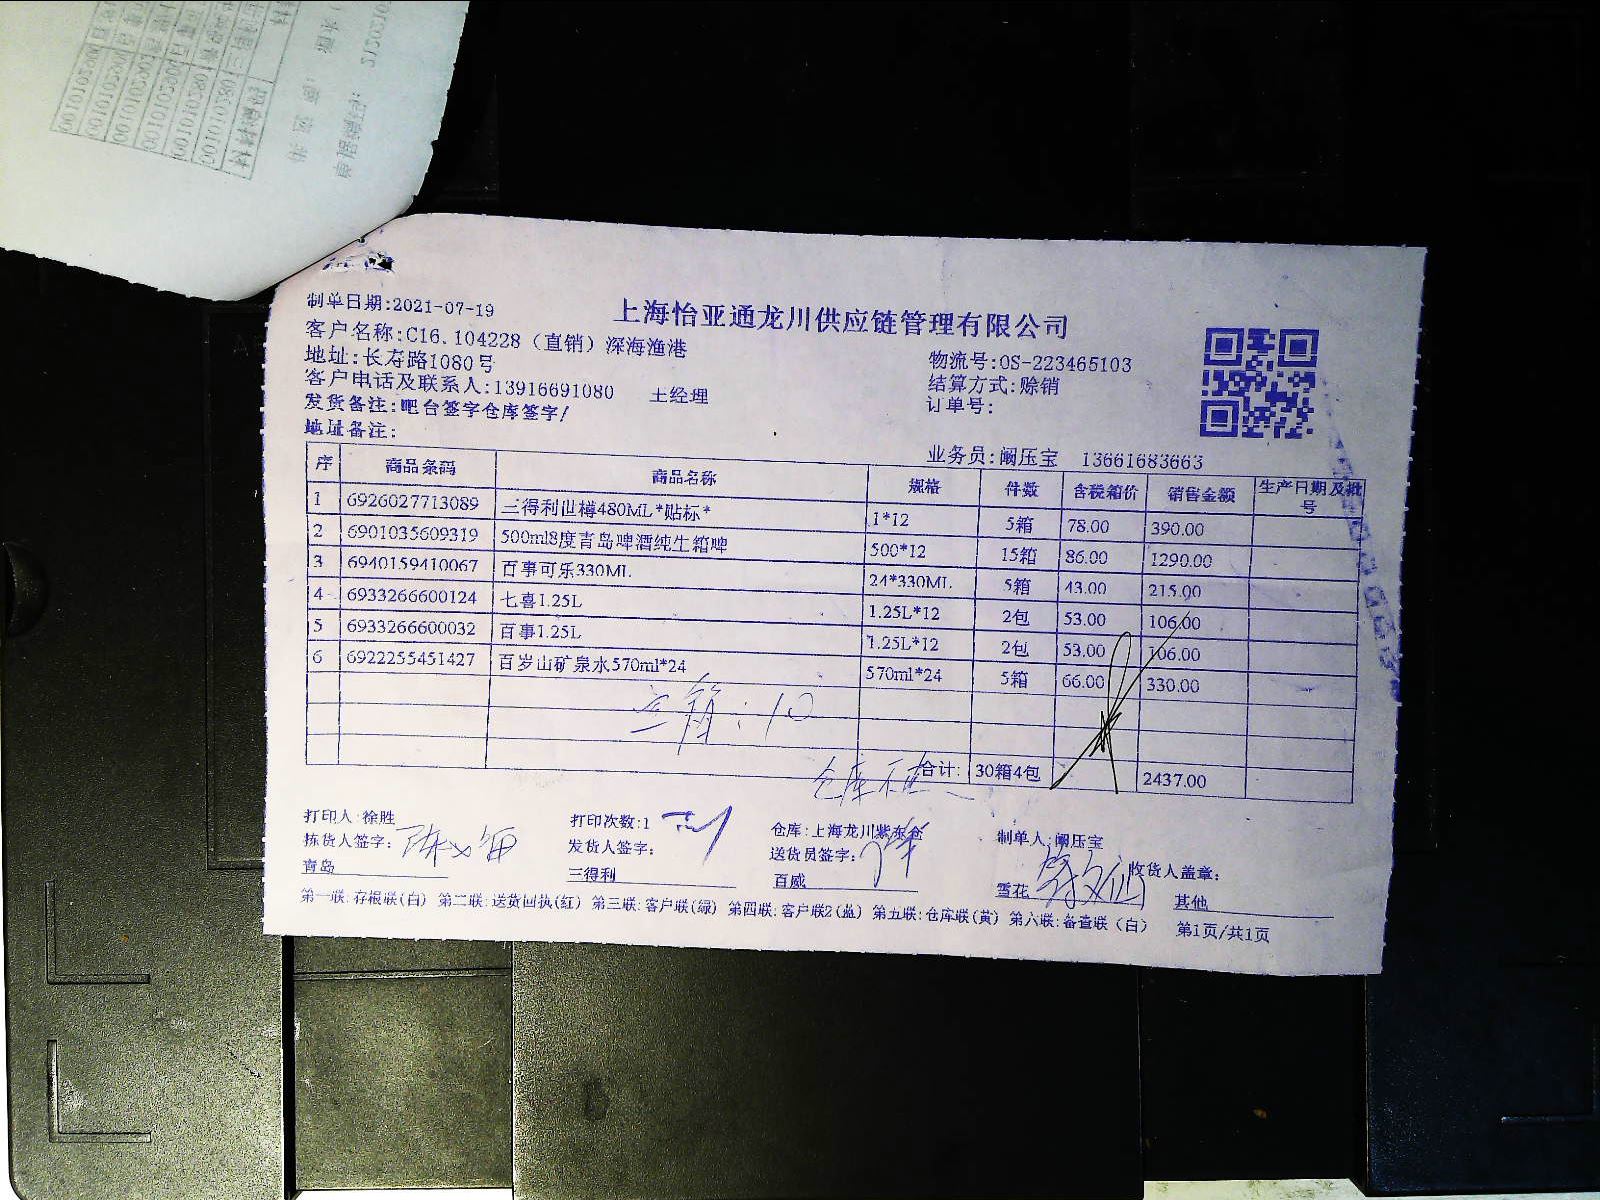 制单日期:2021-07-19
上海怡亚通龙川供应链管理有限公司
客户名称:C16.104228（直销）深海渔港
物流号:OS-223465103
地址:长寿路1080号
结算方式:赊销
客户电话及联系人:13916691080 王经理
订单号:
发货备注:吧台签字仓库签字!
地址备注:
业务员:阚压宝 13661683663
序 商品条码 商品名称 规格 件数 含税箱价 销售金额 生产日期及批号
1 6926027713089 三得利世樽480ML*贴标* 1*12 5箱 78.00 390.00
2 6901035609319 500ml8度青岛啤酒纯生箱啤 500*12 15箱 86.00 1290.00
3 6940159410067 百事可乐330ML 24*330ML 5箱 43.00 215.00
4 6933266600124 七喜1.25L 1.25L*12 2包 53.00 106.00
5 6933266600032 百事1.25L 1.25L*12 2包 53.00 106.00
6 6922255451427 百岁山矿泉水570ml*24 570ml*24 5箱 66.00 330.00
空箱:10
合计: 30箱4包 2437.00
打印人:徐胜 打印次数:1 仓库:上海龙川紫东仓 制单人:阚压宝
拣货人签字: 发货人签字: 送货员签字: 收货人盖章:
青岛 三得利 百威 雪花 其他
第一联:存根联(白) 第二联:送货回执(红) 第三联:客户联(绿) 第四联:客户联2(蓝) 第五联:仓库联(黄) 第六联:备查联(白) 第1页/共1页